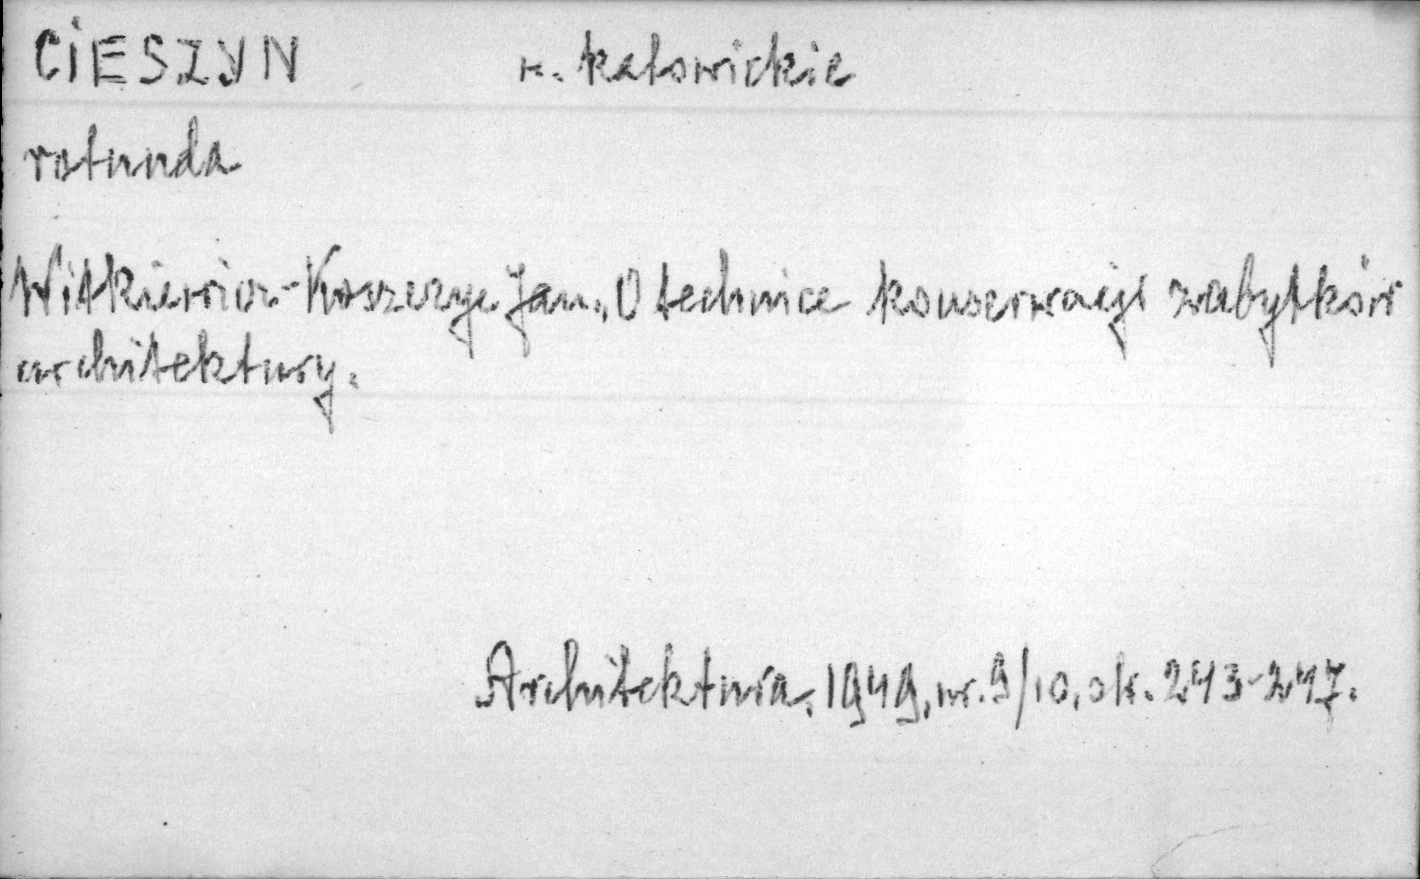 CIESZYN w. katowickie
rotunda
Witkiewicz-Koszczyc Jan., O technice konserwacji zabytków
architektury.
Architektura, 1949, nr. 9/10, str. 243-247.